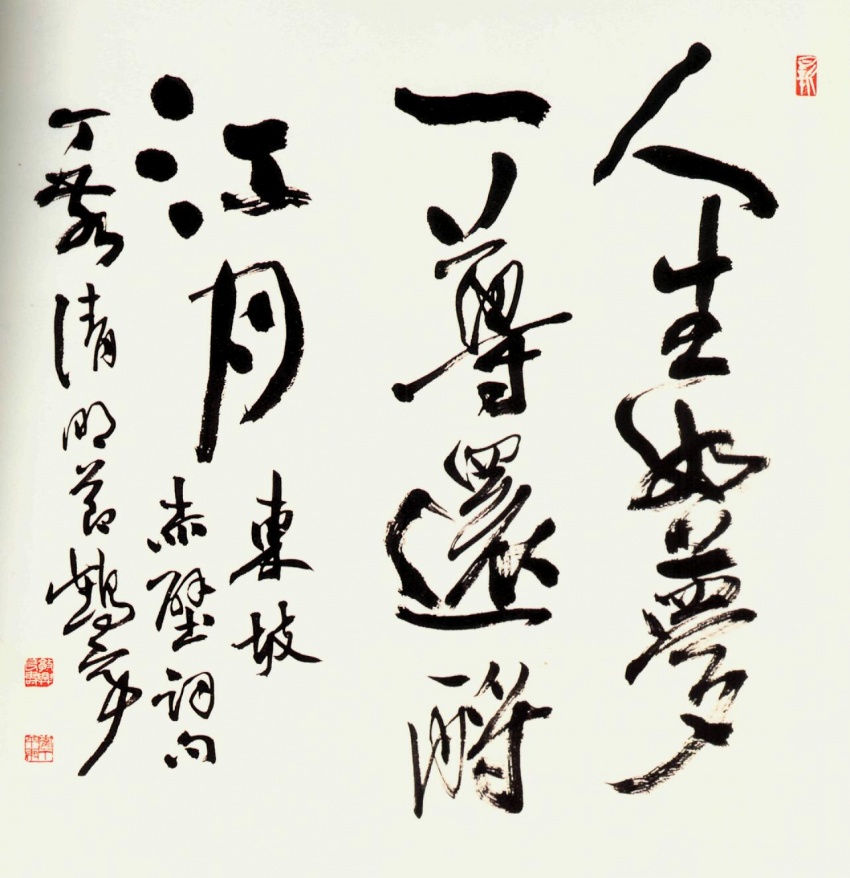 人生如夢
一尊還酹
江月
東坡
赤壁詞句
丁 清明節